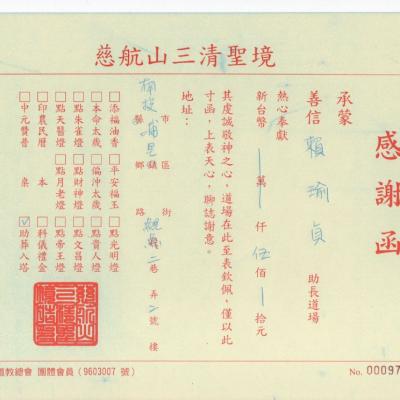 慈航山三清聖境
感謝函
承蒙
善信 賴瑜貞 助長道場
熱心奉獻
新台幣 萬 仟 伍佰 拾元
其虔誠敬神之心,道場在此至表欽佩,僅以此
寸函,上表天心,聊誌謝意。
地址:
南投 縣市 埔里 鄉鎮區 路街 二巷 弄 二號 樓
□添福油香 □平安福玉 □點光明燈
□本命太歲 □偏沖太歲 □點貴人燈
□點朱雀燈 □點財神燈 □點文昌燈
□點天醫燈 □點月老燈 □點帝王燈
□印農民曆 本 □科儀禮金
□中元贊普 桌 ☑助葬入塔
道教總會 團體會員(9603007 號)
No. 00097